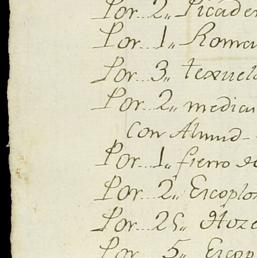 Por... 2,, Picader
Por... 1,, Roma
Por... 3,, texuel
Por... 2,, median
Con Almud-
Por... 1,, fierro de
Por... 2,, Escoplos
Por... 25,, Hoze
Por... 5,, Escop